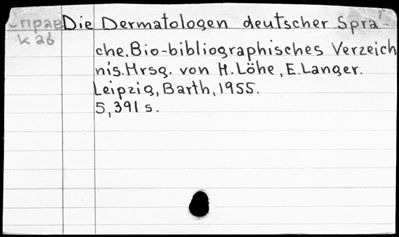 Справ Die Dermatologen deutscher Spra-
K 26
che.Bio-bibliographisches Verzeich
nis.Hrsg. von H.Löhe, E.Langer.
Leipzig, Barth, 1955.
5,391 s.